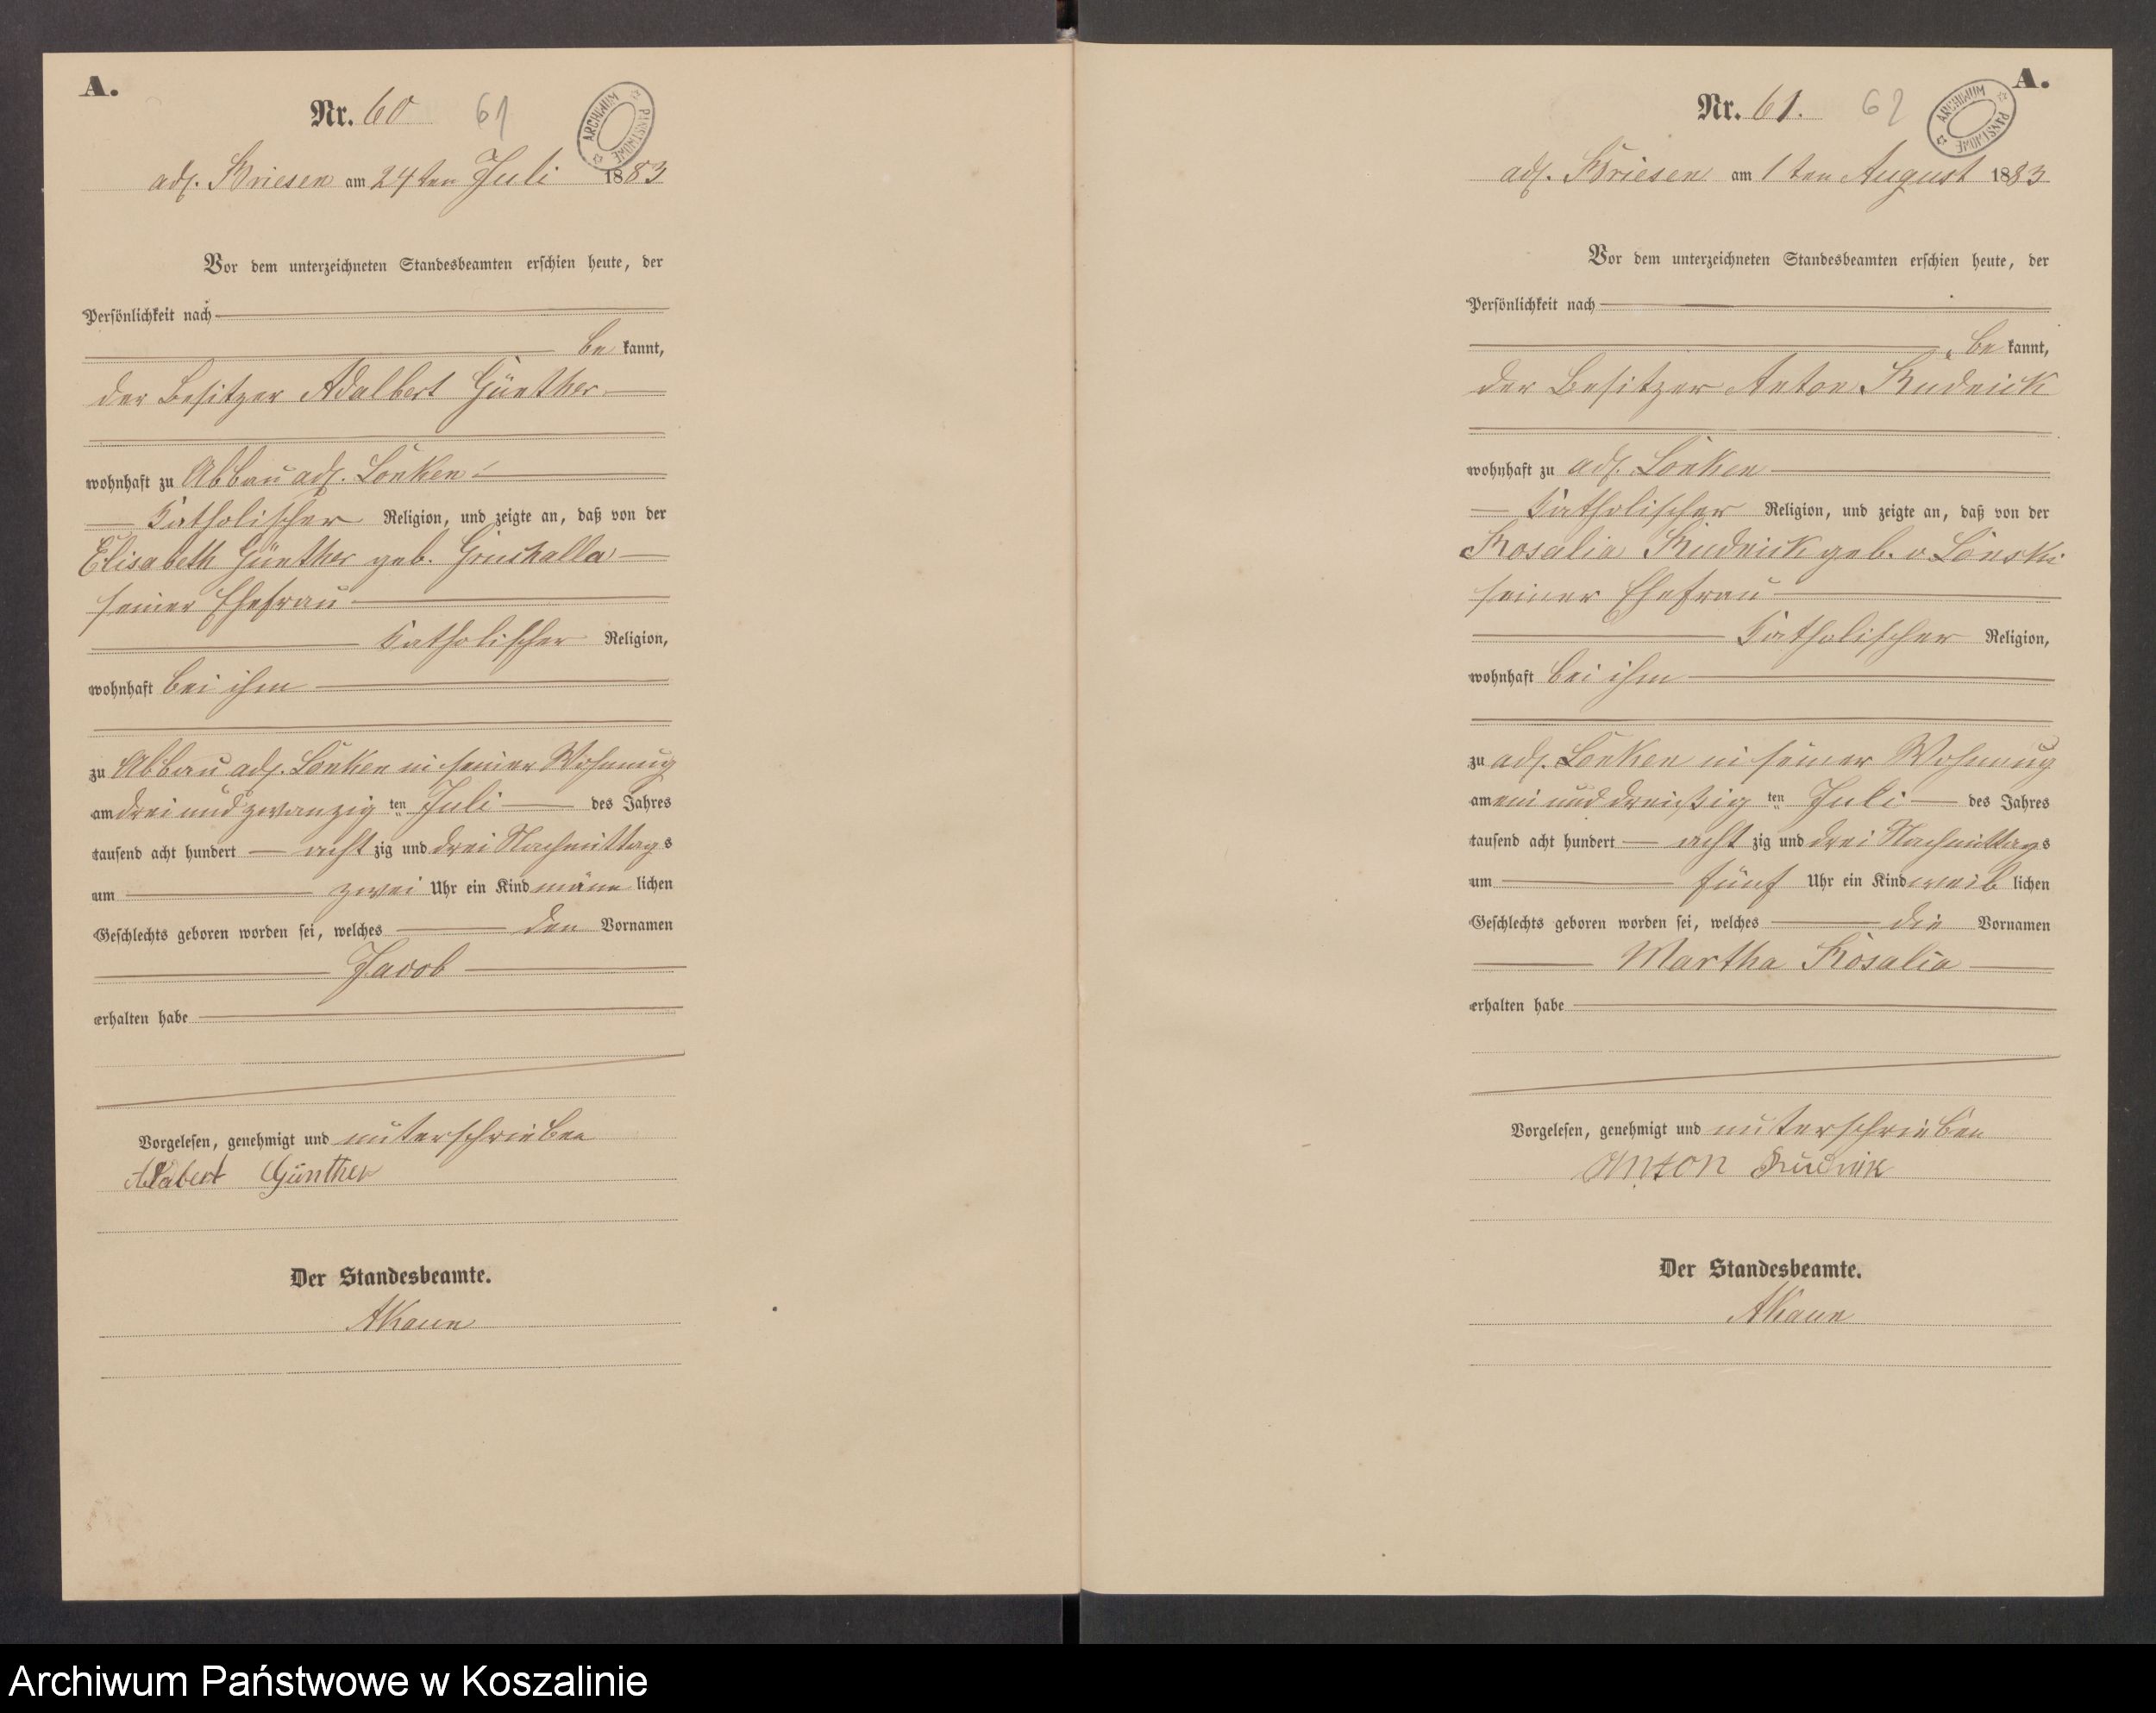 A.
Nr. 60
61
ARCHIWUM PAŃSTWOWE
adl. Briesen am 24ten Juli 1883
Vor dem unterzeichneten Standesbeamten erschien heute, der
Persönlichkeit nach
be kannt,
der Besitzer Adalbert Günther
wohnhaft zu Abbau adl. Lonken
Katholischer Religion, und zeigte an, daß von der
Elisabeth Günther geb.
seiner Ehefrau
Katholischer Religion,
wohnhaft bei ihm
zu Abbau adl. Lonken in seiner Wohnung
am drei und zwanzig ten Juli des Jahres
tausend acht hundert acht zig und drei Nachmittags
um zwei Uhr ein Kind männ lichen
Geschlechts geboren worden sei, welches den Vornamen
Jacob
erhalten habe
Vorgelesen, genehmigt und unterschrieben
Günther
Der Standesbeamte.
A.
Nr. 61.
62
ARCHIWUM PAŃSTWOWE
adl. Briesen am 1ten August 1883
Vor dem unterzeichneten Standesbeamten erschien heute, der
Persönlichkeit nach
be kannt,
der Besitzer Anton Rudnick
wohnhaft zu adl. Lonken
Katholischer Religion, und zeigte an, daß von der
Rosalia Rudnick geb. v Lonski
seiner Ehefrau
Katholischer Religion,
wohnhaft bei ihm
zu adl. Lonken in seiner Wohnung
am ein und dreißig ten Juli des Jahres
tausend acht hundert acht zig und drei Nachmittags
um fünf Uhr ein Kind weib lichen
Geschlechts geboren worden sei, welches die Vornamen
Martha Rosalia
erhalten habe
Vorgelesen, genehmigt und unterschrieben
Anton Rudnik
Der Standesbeamte.
Archiwum Państwowe w Koszalinie